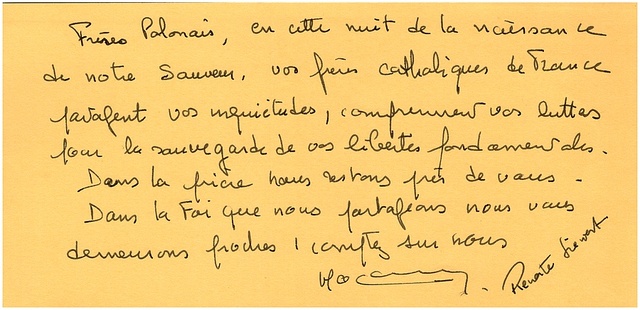 Frères Polonais, en cette nuit de la naissance
de notre Sauveur, vos frères catholiques de France
partagent vos inquiétudes, comprennent vos luttes
pour la sauvegarde de vos libertés fondamentales.
Dans la prière nous restons près de vous.
Dans la Foi que nous partageons nous vous
demeurons proches ! comptez sur nous
Renate